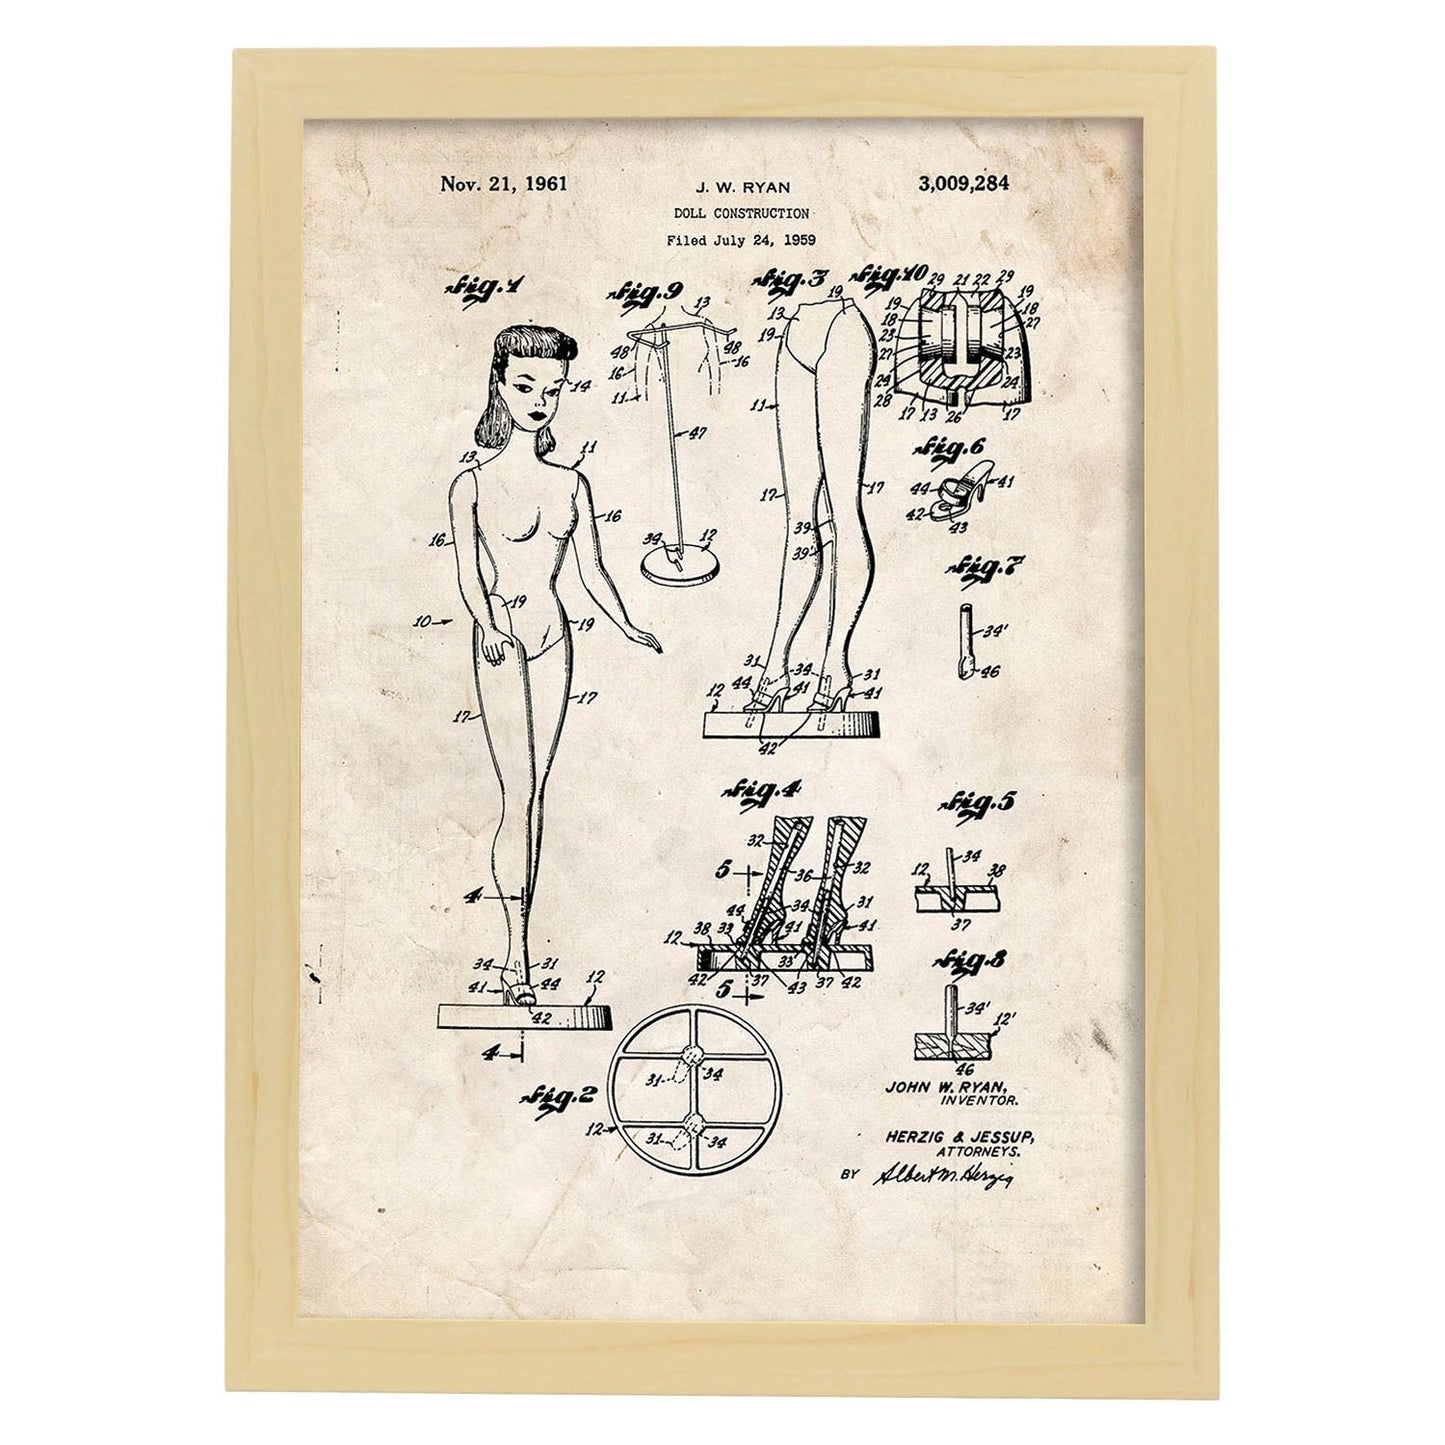 Nov. 21, 1961
J. W. RYAN
3,009,284
DOLL CONSTRUCTION
Filed July 24, 1959
Fig. 1
14
13
11
16
16
19
19
10
17
17
4
34
31
12
41
44
42
4
Fig. 9
13
48
48
16
16
11
47
34
12
Fig. 3
19
13
19
11
17
17
39
39'
31
34
31
12
44
41
41
42
Fig. 10
29 21 22 29
19
19
18
18
23
27
27
23
24
24
28
17 13 26 17
Fig. 6
44
41
42
43
Fig. 7
34'
46
Fig. 4
32
32
5
36
34
44
31
33
41
41
38
12
33
42
37
43
37
42
5
Fig. 5
12
34
38
37
Fig. 2
31
34
12
31
34
Fig. 8
34'
12'
46
JOHN W. RYAN,
INVENTOR.
HERZIG & JESSUP,
ATTORNEYS.
BY Albert M. Herzig